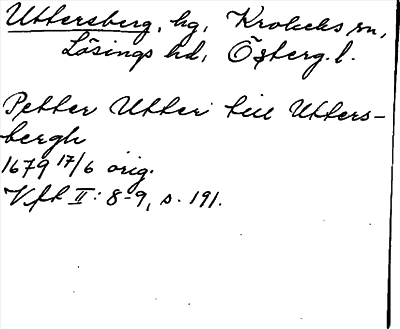 Uttersberg, hg, Krokeks sn,
Lösings hd, Österg. l.
Petter Utter till Utters-
bergh
1679 17/6 orig.
Vfk II: 8-9, s. 191.